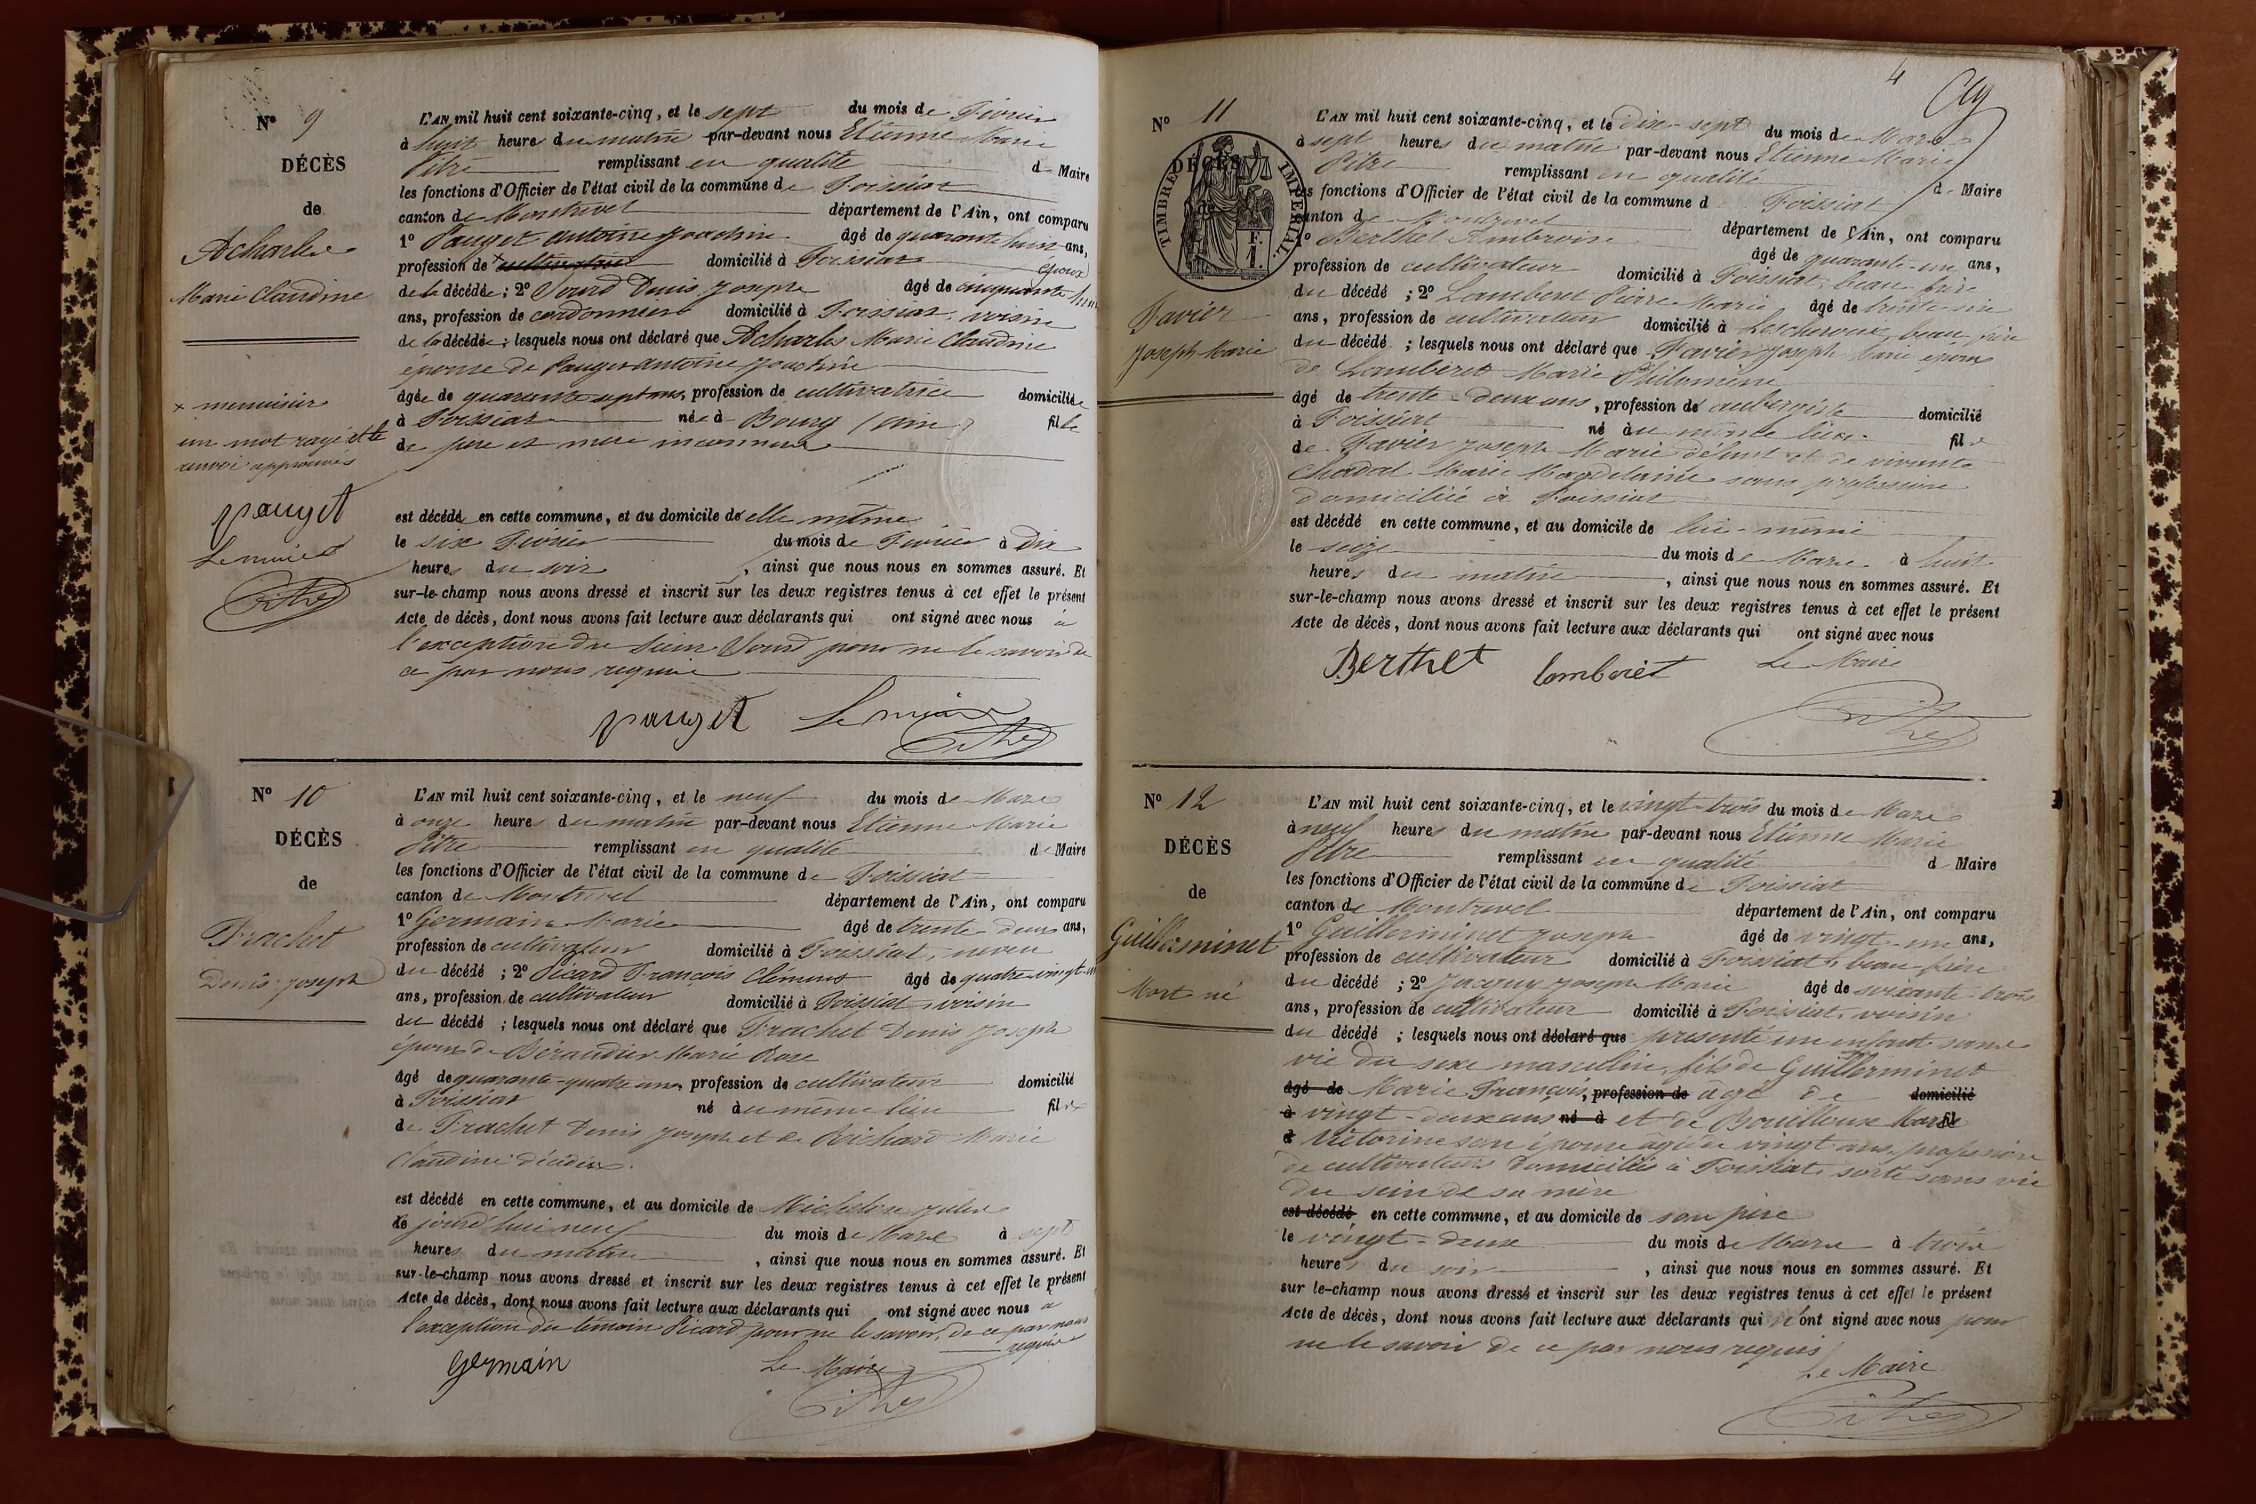 N° 9
DÉCÈS
de
Acharles
Marie Claudine
× menuisier
un mot rayé et le
renvoi approuvés
pauget
Le maire
Pitre
L'AN mil huit cent soixante-cinq, et le sept du mois de Février
à huit heures du matin par-devant nous Etienne Marie
Pitre remplissant en qualité de Maire
les fonctions d'Officier de l'état civil de la commune de Foissiat
canton de Montrevel département de l'Ain, ont comparu
1° Pauget antoine Joachim âgé de quarante huit ans,
profession de × cultivateur domicilié à Foissiat époux
de la décédée ; 2° Sourd Denis Joseph âgé de cinquante
ans, profession de cordonnier domicilié à Foissiat, voisin
de la décédée ; lesquels nous ont déclaré que Acharles Marie Claudine
épouse de Pauget antoine Joachim
âgée de quarante sept ans, profession de cultivatrice domiciliée
à Foissiat née à Bourg (Ain) fille
de père et mère inconnus
est décédée en cette commune, et au domicile de elle même
le six Février du mois de Février à Dix
heures du soir, ainsi que nous nous en sommes assuré. Et
sur-le-champ nous avons dressé et inscrit sur les deux registres tenus à cet effet le présent
Acte de décès, dont nous avons fait lecture aux déclarants qui ont signé avec nous à
l'exception du Sieur Sourd pour ne le savoir de
ce par nous requis
pauget Le maire
Pitre
N° 10
DÉCÈS
de
Frachet
Denis Joseph
L'AN mil huit cent soixante-cinq, et le neuf du mois de Mars
à onze heures du matin par-devant nous Etienne Marie
Pitre remplissant en qualité de Maire
les fonctions d'Officier de l'état civil de la commune de Foissiat
canton de Montrevel département de l'Ain, ont comparu
1° Germain Marie âgé de trente deux ans,
profession de cultivateur domicilié à Foissiat, neveu
du décédé ; 2° Picard François Clément âgé de quatre-vingt-un
ans, profession de cultivateur domicilié à Foissiat, voisin
du décédé ; lesquels nous ont déclaré que Frachet Denis Joseph
époux de Béraudier Marie Rose
âgé de quarante-quatre ans, profession de cultivateur domicilié
à Foissiat né au même lieu fils
de Frachet Denis Joseph et de Marie
Claudine décédés.
est décédé en cette commune, et au domicile de Michelin Julien
le jourd'hui neuf du mois de Mars à sept
heures du matin, ainsi que nous nous en sommes assuré. Et
sur-le-champ nous avons dressé et inscrit sur les deux registres tenus à cet effet le présent
Acte de décès, dont nous avons fait lecture aux déclarants qui ont signé avec nous à
l'exception du témoin Picard pour ne le savoir, de ce par nous
requis
germain Le Maire
Pitre
4
N° 11
DÉCÈS
TIMBRE IMPERIAL.
F.
1.
Favier
Joseph Marie
L'AN mil huit cent soixante-cinq, et le dix-sept du mois de Mars
à sept heures du matin par-devant nous Etienne Marie
Pitre remplissant en qualité de Maire
les fonctions d'Officier de l'état civil de la commune d Foissiat
canton de Montrevel département de l'Ain, ont comparu
1° Berthet Ambroise âgé de quarante-un ans,
profession de cultivateur domicilié à Foissiat, beau frère
du décédé ; 2° Lamberet Pierre Marie âgé de trente-six
ans, profession de cultivateur domicilié à Lescheroux, beau frère
du décédé ; lesquels nous ont déclaré que Favier Joseph Marie époux
de Lamberet Marie Philomène
âgé de trente-deux ans, profession de aubergiste domicilié
à Foissiat né au même lieu fils
de Favier Joseph Marie défunt et de vivante
Chadal Marie Magdelaine sans profession
domiciliée à Foissiat
est décédé en cette commune, et au domicile de lui-même
le seize du mois de Mars à huit
heures du matin, ainsi que nous nous en sommes assuré. Et
sur-le-champ nous avons dressé et inscrit sur les deux registres tenus à cet effet le présent
Acte de décès, dont nous avons fait lecture aux déclarants qui ont signé avec nous
Berthet lamberet Le Maire
Pitre
N° 12
DÉCÈS
de
Guillerminet
Mort né
L'AN mil huit cent soixante-cinq, et le vingt-trois du mois de Mars
à neuf heures du matin par-devant nous Etienne Marie
Pitre remplissant en qualité de Maire
les fonctions d'Officier de l'état civil de la commune de Foissiat
canton de Montrevel département de l'Ain, ont comparu
1° Guillerminet Joseph âgé de vingt-un ans,
profession de cultivateur domicilié à Foissiat, beau frère
du décédé ; 2° Joseph Marie âgé de soixante-trois
ans, profession de cultivateur domicilié à Foissiat, voisin
du décédé ; lesquels nous ont déclaré que présenté un enfant sans
vie du sexe masculin, fils de Guillerminet
âgé de Marie François, profession de âgé de domicilié
à vingt-deux ans né à et de Bouilloux Marie fil
d Victorine son épouse agée de vingt ans, profession
de cultivateurs domiciliés à Foissiat, sorti sans vie
du sein de sa mère
est décédé en cette commune, et au domicile de son père
le vingt-deux du mois de Mars à trois
heures du soir, ainsi que nous nous en sommes assuré. Et
sur le-champ nous avons dressé et inscrit sur les deux registres tenus à cet effet le présent
Acte de décès, dont nous avons fait lecture aux déclarants qui n'ont signé avec nous pour
ne le savoir de ce par nous requis
Le Maire
Pitre